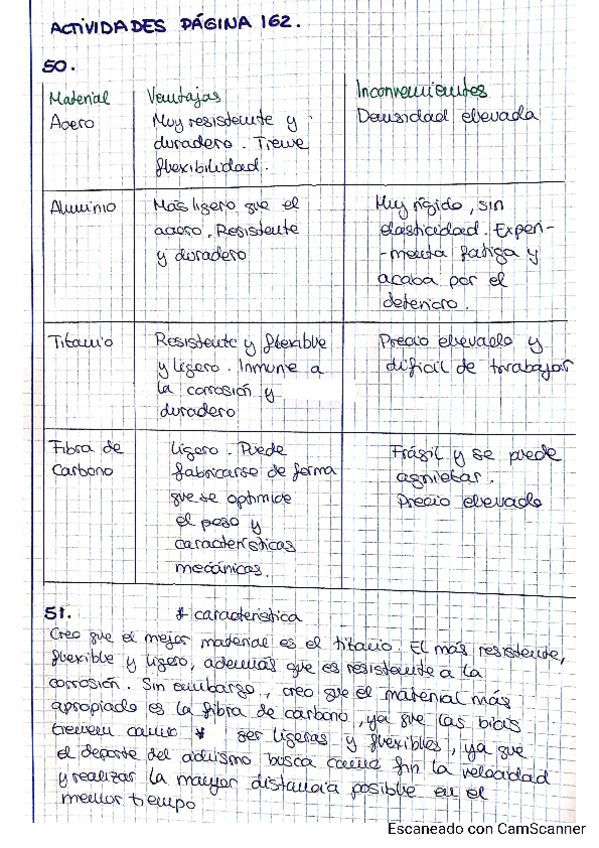 ACTIVIDADES PÁGINA 162.
50.
Material
Ventajas
Inconvenientes
Acero
Muy resistente y
duradero. Tiene
flexibilidad.
Densidad elevada
Aluminio
Más ligero que el
acero. Resistente
y duradero
Muy rígido, sin
elasticidad. Experi-
-menta fatiga y
acaba por el
deterioro.
Titanio
Resistente y flexible
y ligero. Inmune a
la corrosión y
duradero
Precio elevado y
difícil de trabajar
Fibra de
Carbono
Ligero. Puede
fabricarse de forma
que se optimice
el peso y
características
mecánicas.
Frágil y se puede
agrietar.
Precio elevado
51.
* característica
Creo que el mejor material es el titanio. El más resistente,
flexible y ligero, además que es resistente a la
corrosión. Sin embargo, creo que el material más
apropiado es la fibra de carbono, ya que las bicis
tienen como * ser ligeras y flexibles, ya que
el deporte del ciclismo busca como fin la velocidad
y realizar la mayor distancia posible en el
menor tiempo
Escaneado con CamScanner